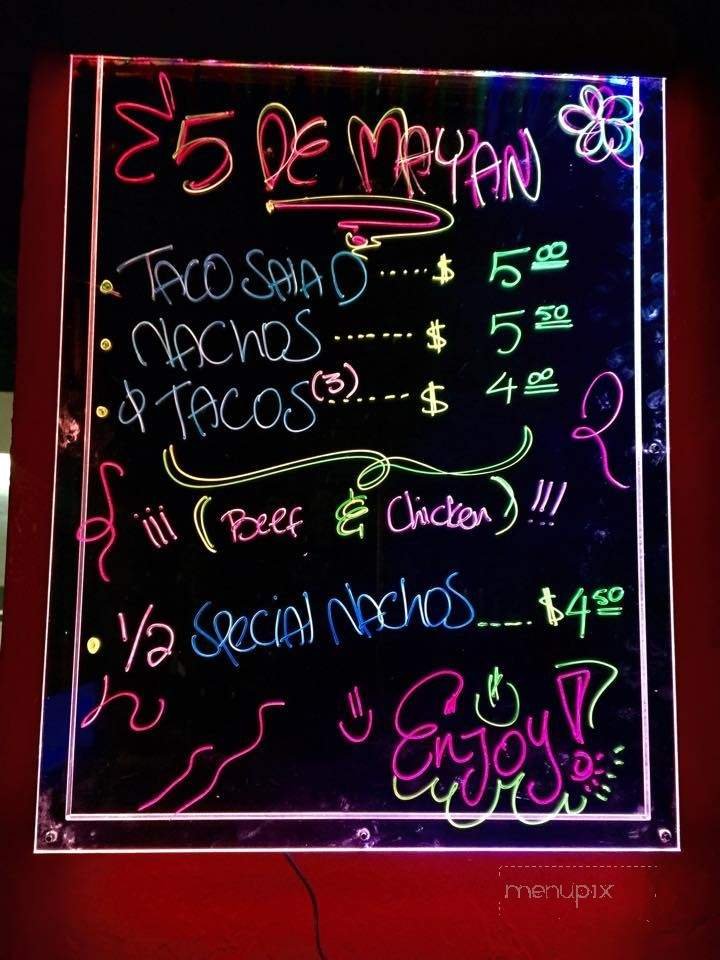 5 DE MAYAN
TACO SALAD ..... $ 5 00
NACHOS ....... $ 5 50
TACOS (3) ....... $ 4 00
¡¡¡ (Beef & Chicken) !!!
1/2 Special NACHOS ..... $4 50
Enjoy!
menupix